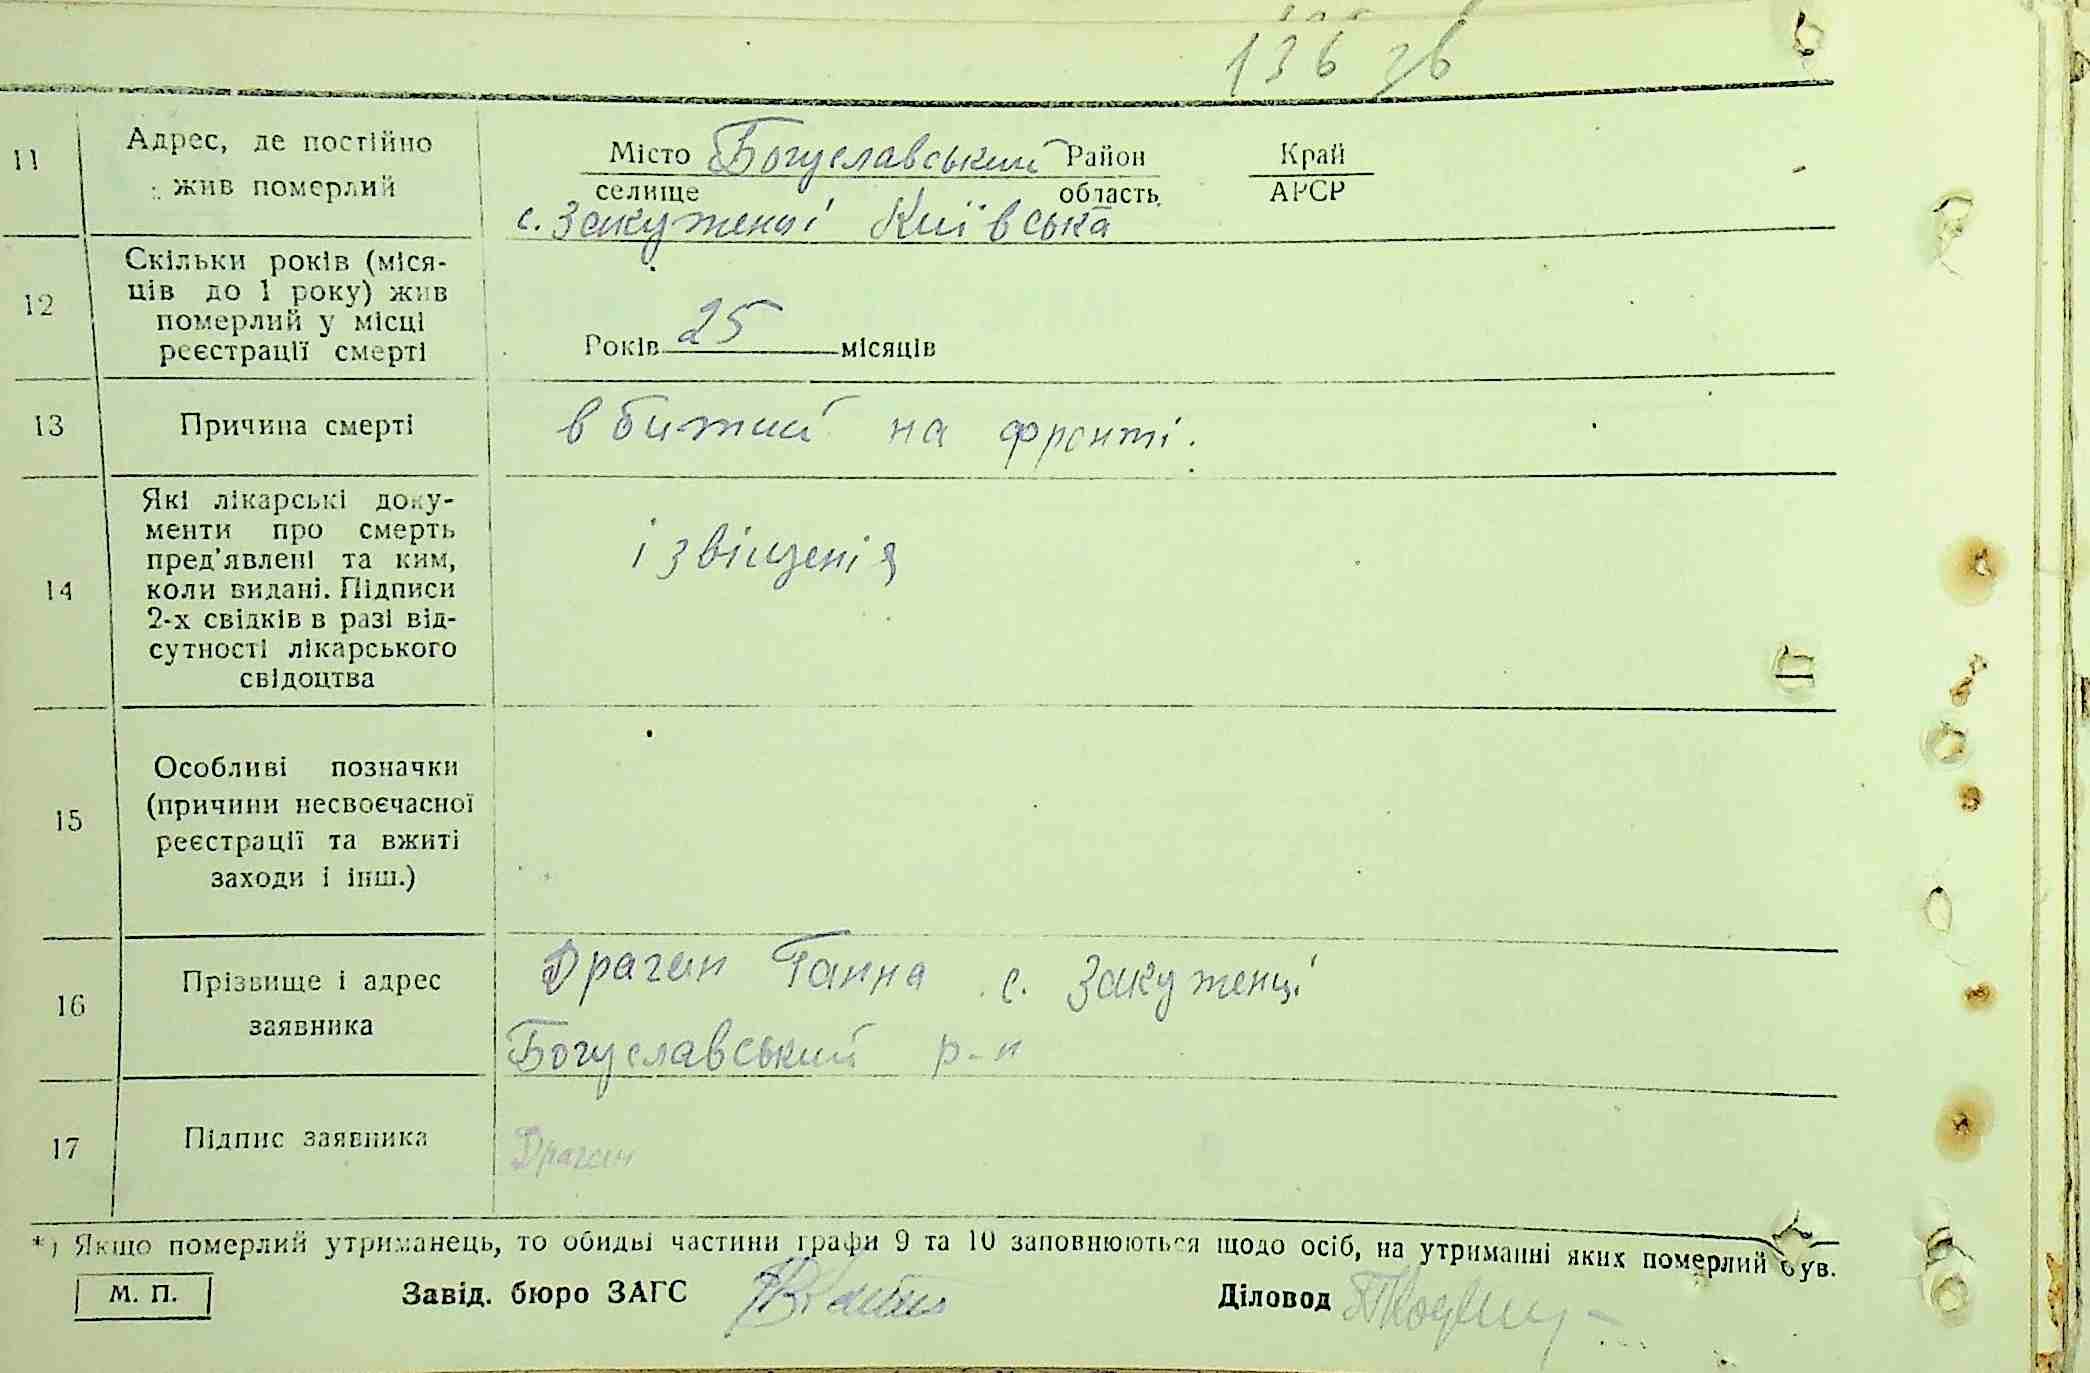 136 зв
11
Адрес, де постійно
жив померлий
Місто Богуславський Район Край
селище область АРСР
с. Закутенці Київська
12
Скільки років (міся-
ців до 1 року) жив
померлий у місці
реєстрації смерті
Років 25 місяців
13
Причина смерті
вбитий на фронті.
14
Які лікарські доку-
менти про смерть
пред'явлені та ким,
коли видані. Підписи
2-х свідків в разі від-
сутності лікарського
свідоцтва
ізвіщенія
15
Особливі позначки
(причини несвоєчасної
реєстрації та вжиті
заходи і інш.)
16
Прізвище і адрес
заявника
Драган Ганна с. Закутенці
Богуславський р-н
17
Підпис заявника
Драган
*) Якщо померлий утриманець, то обидві частини графи 9 та 10 заповнюються щодо осіб, на утриманні яких померлий був.
М. П.
Завід. бюро ЗАГС
Діловод